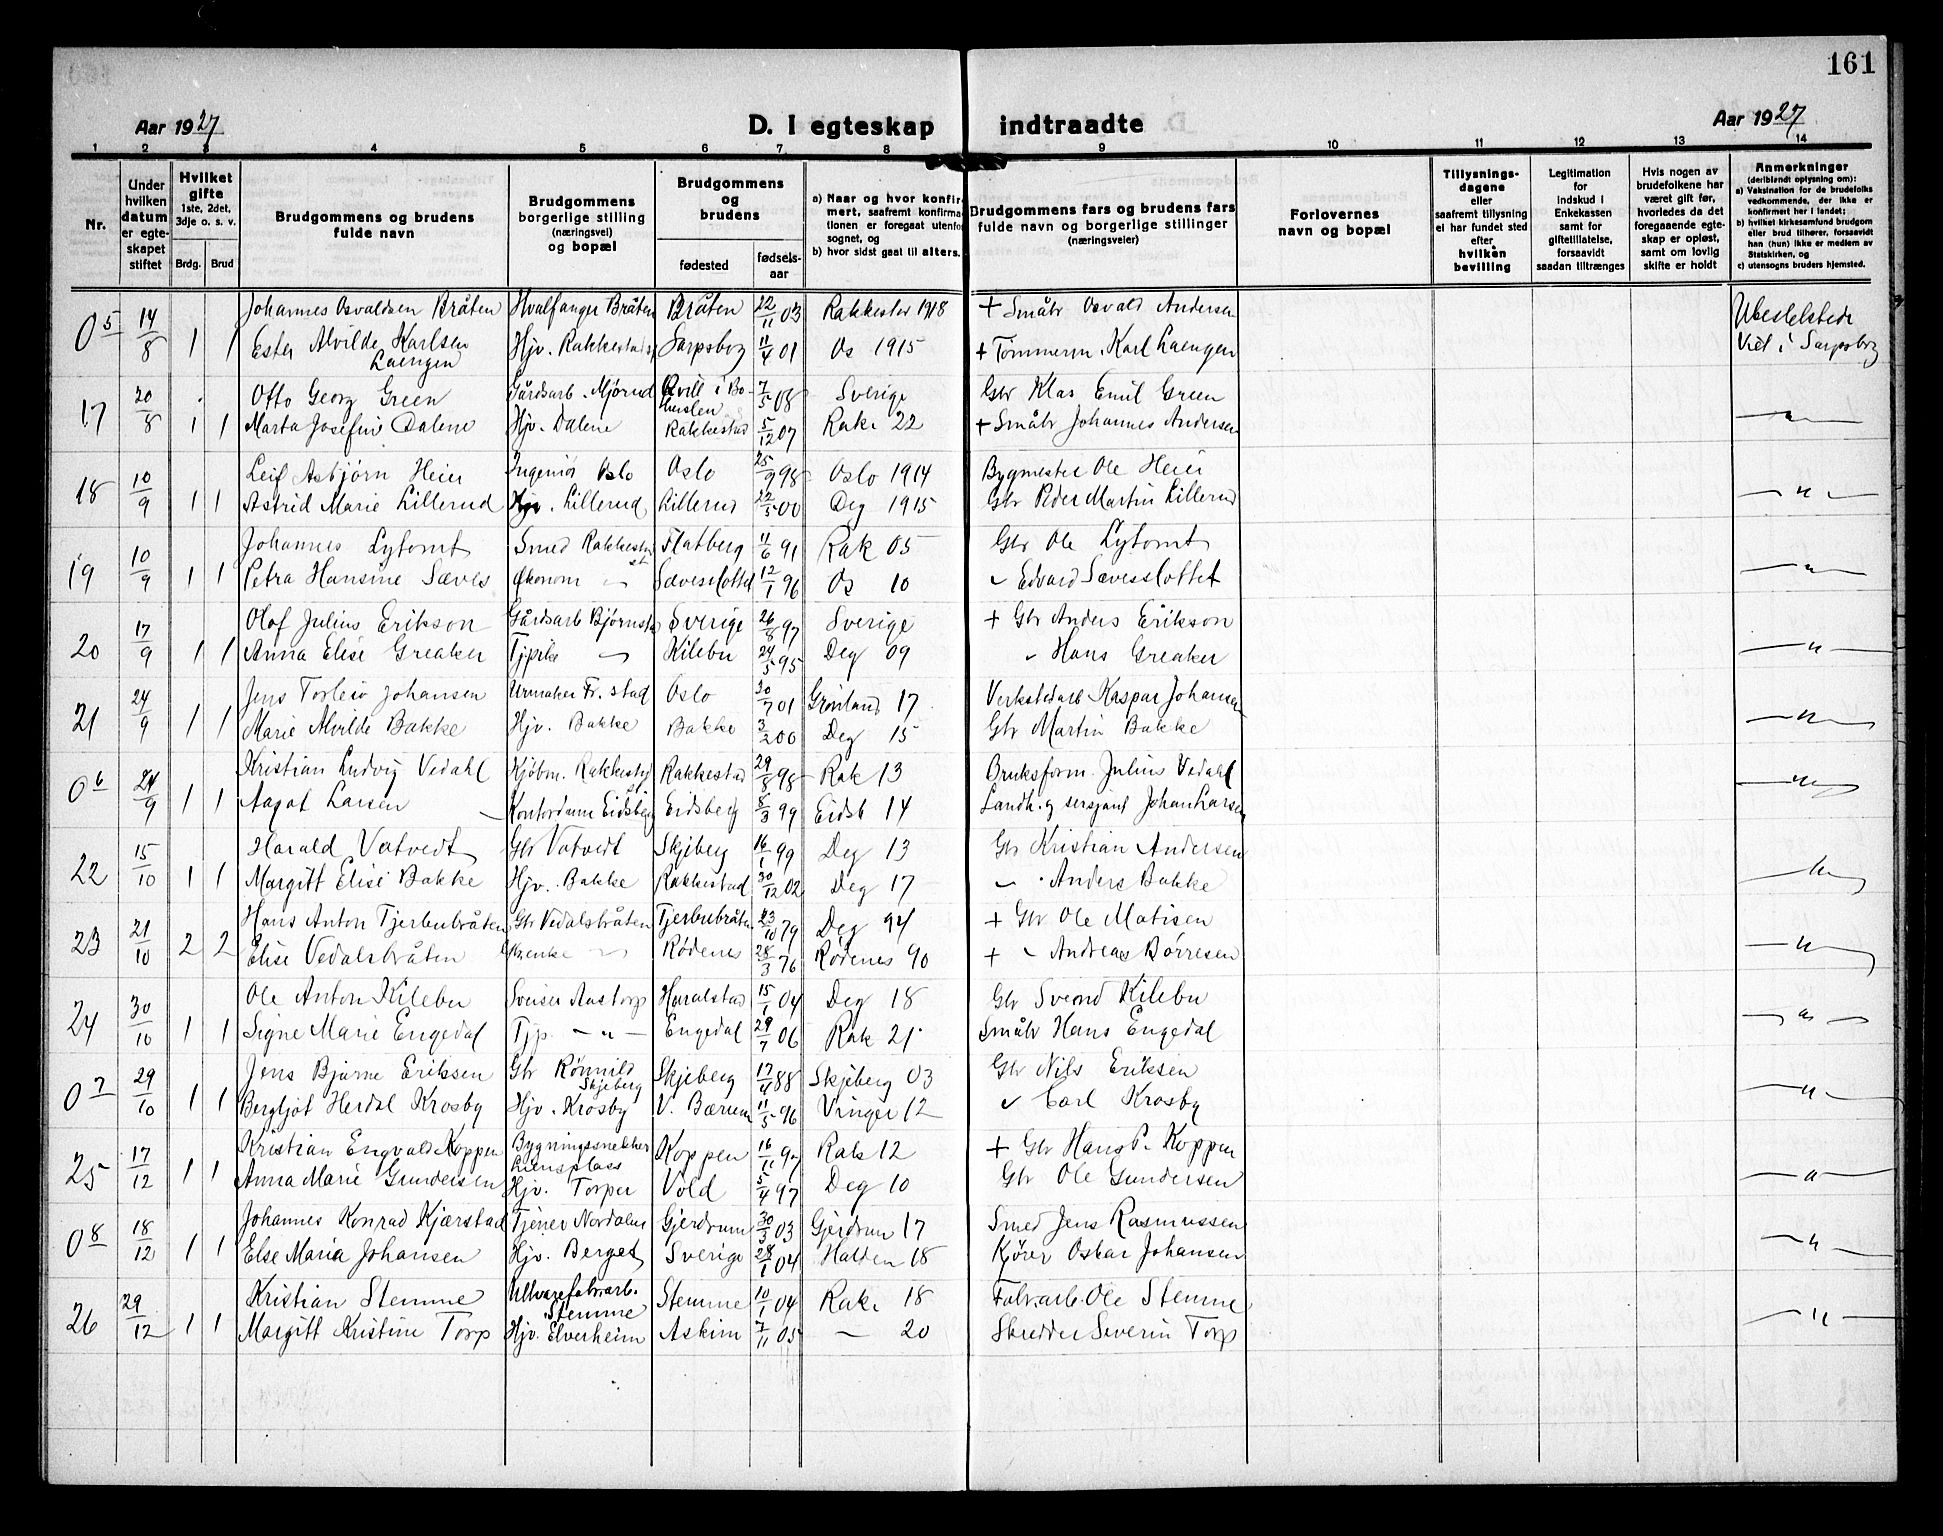 161
Aar 1927
D. I egteskap indtraadte
Aar 1927
1 2 3 4 5 6 7 8 9 10 11 12 13 14
Nr.
Under hvilken datum er egteskapet stiftet
Hvilket gifte 1ste, 2det, 3dje o. s. v.
Brdg. Brud
Brudgommens og brudens fulde navn
Brudgommens borgerlige stilling (næringsvei) og bopæl
Brudgommens og brudens
fødested fødselsaar
a) Naar og hvor konfirmert, saafremt konfirmationen er foregaat utenfor sognet, og
b) hvor sidst gaat til alters.
Brudgommens fars og brudens fars fulde navn og borgerlige stillinger (næringsveier)
Forlovernes navn og bopæl
Tillysningsdagene eller saafremt tillysning ei har fundet sted efter hvilken bevilling
Legitimation for indskud i Enkekassen samt for giftetillatelse, forsaavidt saadan tiltrænges
Hvis nogen av brudefolkene har været gift før, hvorledes da det foregaaende egteskap er opløst, samt om lovlig skifte er holdt
Anmerkninger (deriblandt oplysning om):
a) Vaksination for de brudefolks vedkommende, der ikke er konfirmert her i landet;
b) hvilket kirkesamfund brudgom eller brud tilhører, forsaavidt han (hun) ikke er medlem av Statskirken, og
c) utensogns bruders hjemsted.
05 14/8 Johannes Osvaldsen Bråten Hvalfanger Bråten Bråten 22/11 03 Rakkestad 1918 + Småbr Osvald Andersen
1 1 Ester Alvilde Karlsen Laengen Hjv. Rakkestad Sarpsborg 11/4 01 Os 1915 + Tømmerm. Karl Laengen Viet i Sarpsborg
17 20/8 Otto Georg Green Gårdsarb. Mjørud Qvill i Bohuslen 7/5 08 Sverige Gbr Klas Emil Green
1 1 Marta Josefine Dalene Hjv. Dalene Rakkestad 5/12 07 Rak. 22 + Småbr Johannes Andersen — " —
18 10/9 Leif Asbjørn Heier Ingeniør Oslo Oslo 25/9 98 Oslo 1914 Bygmester Ole Heier
1 1 Astrid Marie Lillerud Hjv. Lillerud Lillerud 22/5 00 Deg 1915 Gbr Peder Martin Lillerud — " —
19 10/9 Johannes Lytomt Smed Rakkestad st Flatberg 11/6 91 Rak 05 Gbr Ole Lytomt
1 1 Petra Hansine Sæves Økonom — " — Sævesslottet 12/1 96 Os 10 " Edvard Sævesslottet — " —
20 17/9 Olof Julius Erikson Gårdsarb Bjørnstad Sverige 26/8 97 Sverige + Gbr Anders Erikson
1 1 Anna Elise Greaker Tjpike — " — Kilebu 24/5 95 Deg 09 " Hans Greaker — " —
21 24/9 Jens Torleiv Johansen Urmaker Fr. stad Oslo 30/7 01 Grønland 17 Verkstedarb Kaspar Johansen
1 1 Marie Alvilde Bakke Hjv. Bakke Bakke 3/2 00 Deg 15 Gbr Martin Bakke — " —
06 24/9 Kristian Ludvig Vedahl Kjøbm. Rakkestad st Rakkestad 29/8 98 Rak 13 Bruksform. Julius Vedahl
1 1 Aagot Larsen Kontordame Eidsberg Eidsberg 8/3 99 Eidsb 14 Landh. og sersjant Johan Larsen — " —
22 15/10 Harald Vatvedt Gbr Vatvedt Skjeberg 16/1 99 Deg 13 Gbr Kristian Andersen
1 1 Margitt Elise Bakke Hjv. Bakke Rakkestad 30/12 02 Deg 17 " Anders Bakke — " —
23 21/10 Hans Anton Tjerbubråten Gbr Vedalsbråten Tjerbubråten 23/10 79 Deg 94 + Gbr Ole Matisen
2 2 Elise Vedalsbråten Enke — " — Rødenes 28/3 76 Rødenes 90 + " Andreas Børresen — " —
24 30/10 Ole Anton Kilebu Sveiser Aastorp Haralstad 15/1 04 Deg 18 Gbr Svend Kilebu
1 1 Signe Marie Engedal Tjp. — " — Engedal 29/7 06 Rak 21 Småbr Hans Engedal — " —
07 29/10 Jens Bjarne Eriksen Gbr Rømild Skjeberg Skjeberg 17/4 88 Skjeberg 03 Gbr Nils Eriksen
1 1 Bergljot Herdal Krosby Hjv. Krosby V. Bærum 11/5 96 Vinger 12 " Carl Krosby — " —
25 17/12 Kristian Engvald Koppen Bygningssnekker Liensplass Koppen 16/11 97 Rak 12 + Gbr Hans P. Koppen
1 1 Anna Marie Gundersen Hjv. Torper Vold 5/4 97 Deg 10 Gbr Ole Gundersen — " —
08 18/12 Johannes Konrad Kjærstad Tjener Nordalen Gjerdrum 30/3 03 Gjerdrum 17 Smed Jens Rasmussen
1 1 Else Maria Johansen Hjv. Berget Sverige 28/1 04 Halden 18 Kjører Oskar Johansen — " —
26 29/12 Kristian Stemme Ullvarefabr.arb. Stemme Stemme 10/1 04 Rak. 18 Fabr.arb. Ole Stemme
1 1 Margitt Kristine Torp Hjv. Elverheim Askim 7/11 05 — 20 Skredder Severin Torp — " —